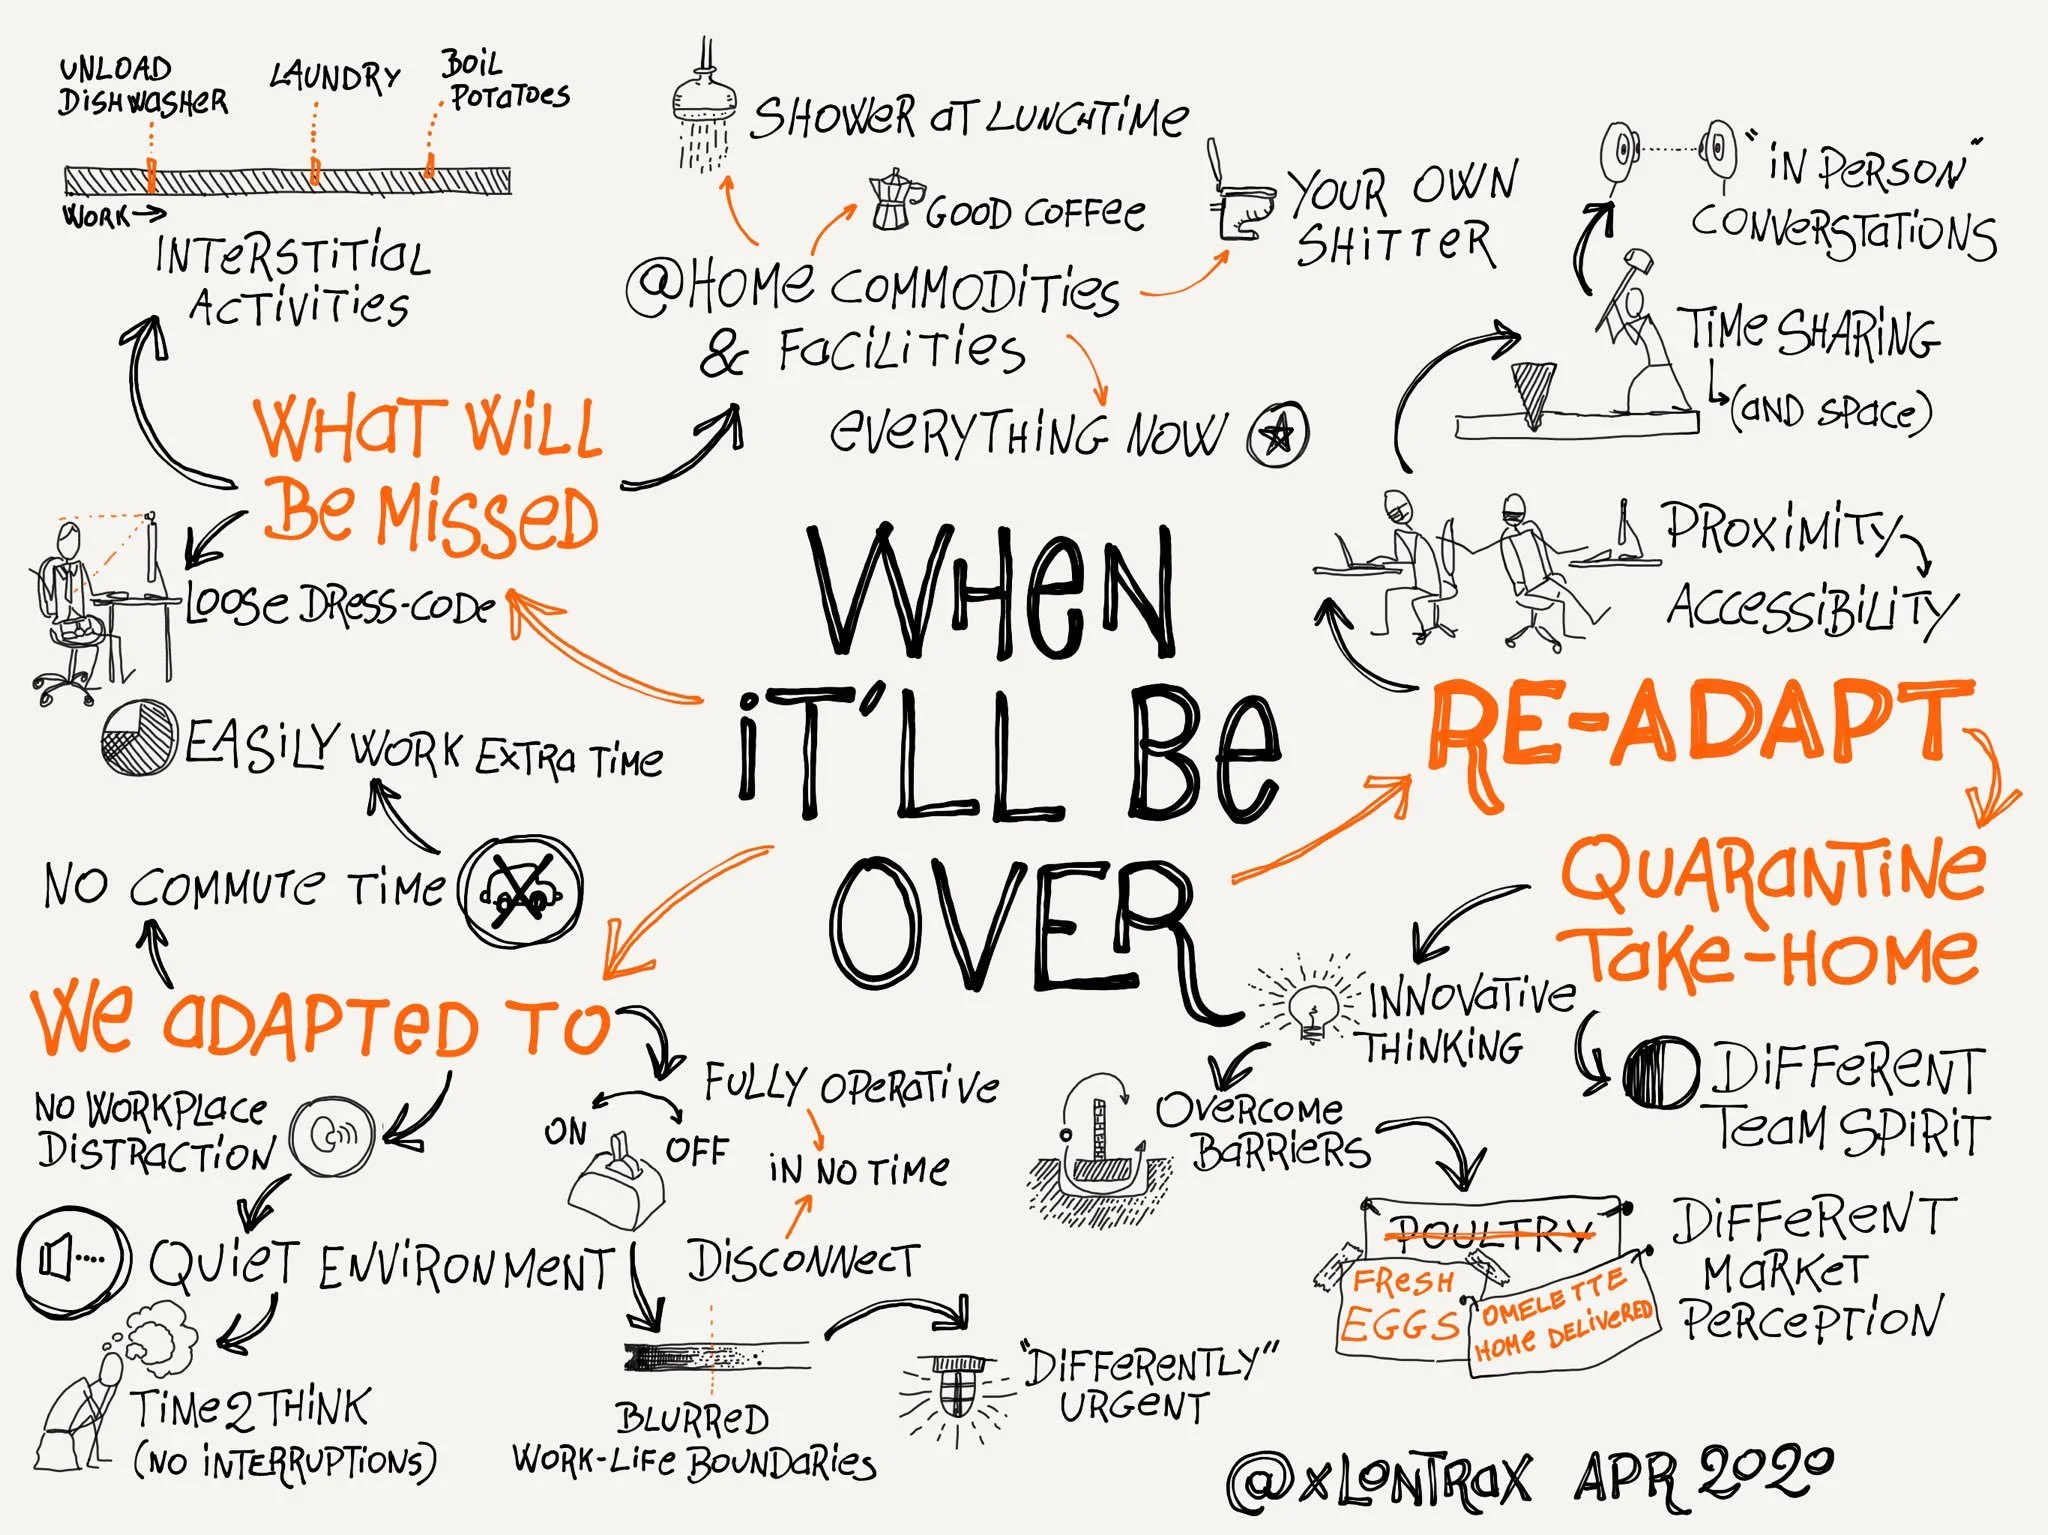 UNLOAD
DISHWASHER
LAUNDRY
BOIL
POTATOES
WORK→
INTERSTITIAL
ACTIVITIES
SHOWER AT LUNCHTIME
GOOD COFFEE
YOUR OWN
SHITTER
@HOME COMMODITIES
& FACILITIES
EVERYTHING NOW
"IN PERSON"
CONVERSTATIONS
TIME SHARING
(AND SPACE)
WHAT WILL
BE MISSED
LOOSE DRESS-CODE
EASILY WORK EXTRA TIME
NO COMMUTE TIME
WHEN
IT'LL BE
OVER
PROXIMITY
ACCESSIBILITY
RE-ADAPT
QUARANTINE
TAKE-HOME
INNOVATIVE
THINKING
DIFFERENT
TEAM SPIRIT
OVERCOME
BARRIERS
POULTRY
FRESH
EGGS
OMELETTE
HOME DELIVERED
DIFFERENT
MARKET
PERCEPTION
WE ADAPTED TO
NO WORKPLACE
DISTRACTION
QUIET ENVIRONMENT
TIME2THINK
(NO INTERRUPTIONS)
ON
OFF
FULLY OPERATIVE
IN NO TIME
DISCONNECT
BLURRED
WORK-LIFE BOUNDARIES
"DIFFERENTLY"
URGENT
@XLONTRAX APR 2020